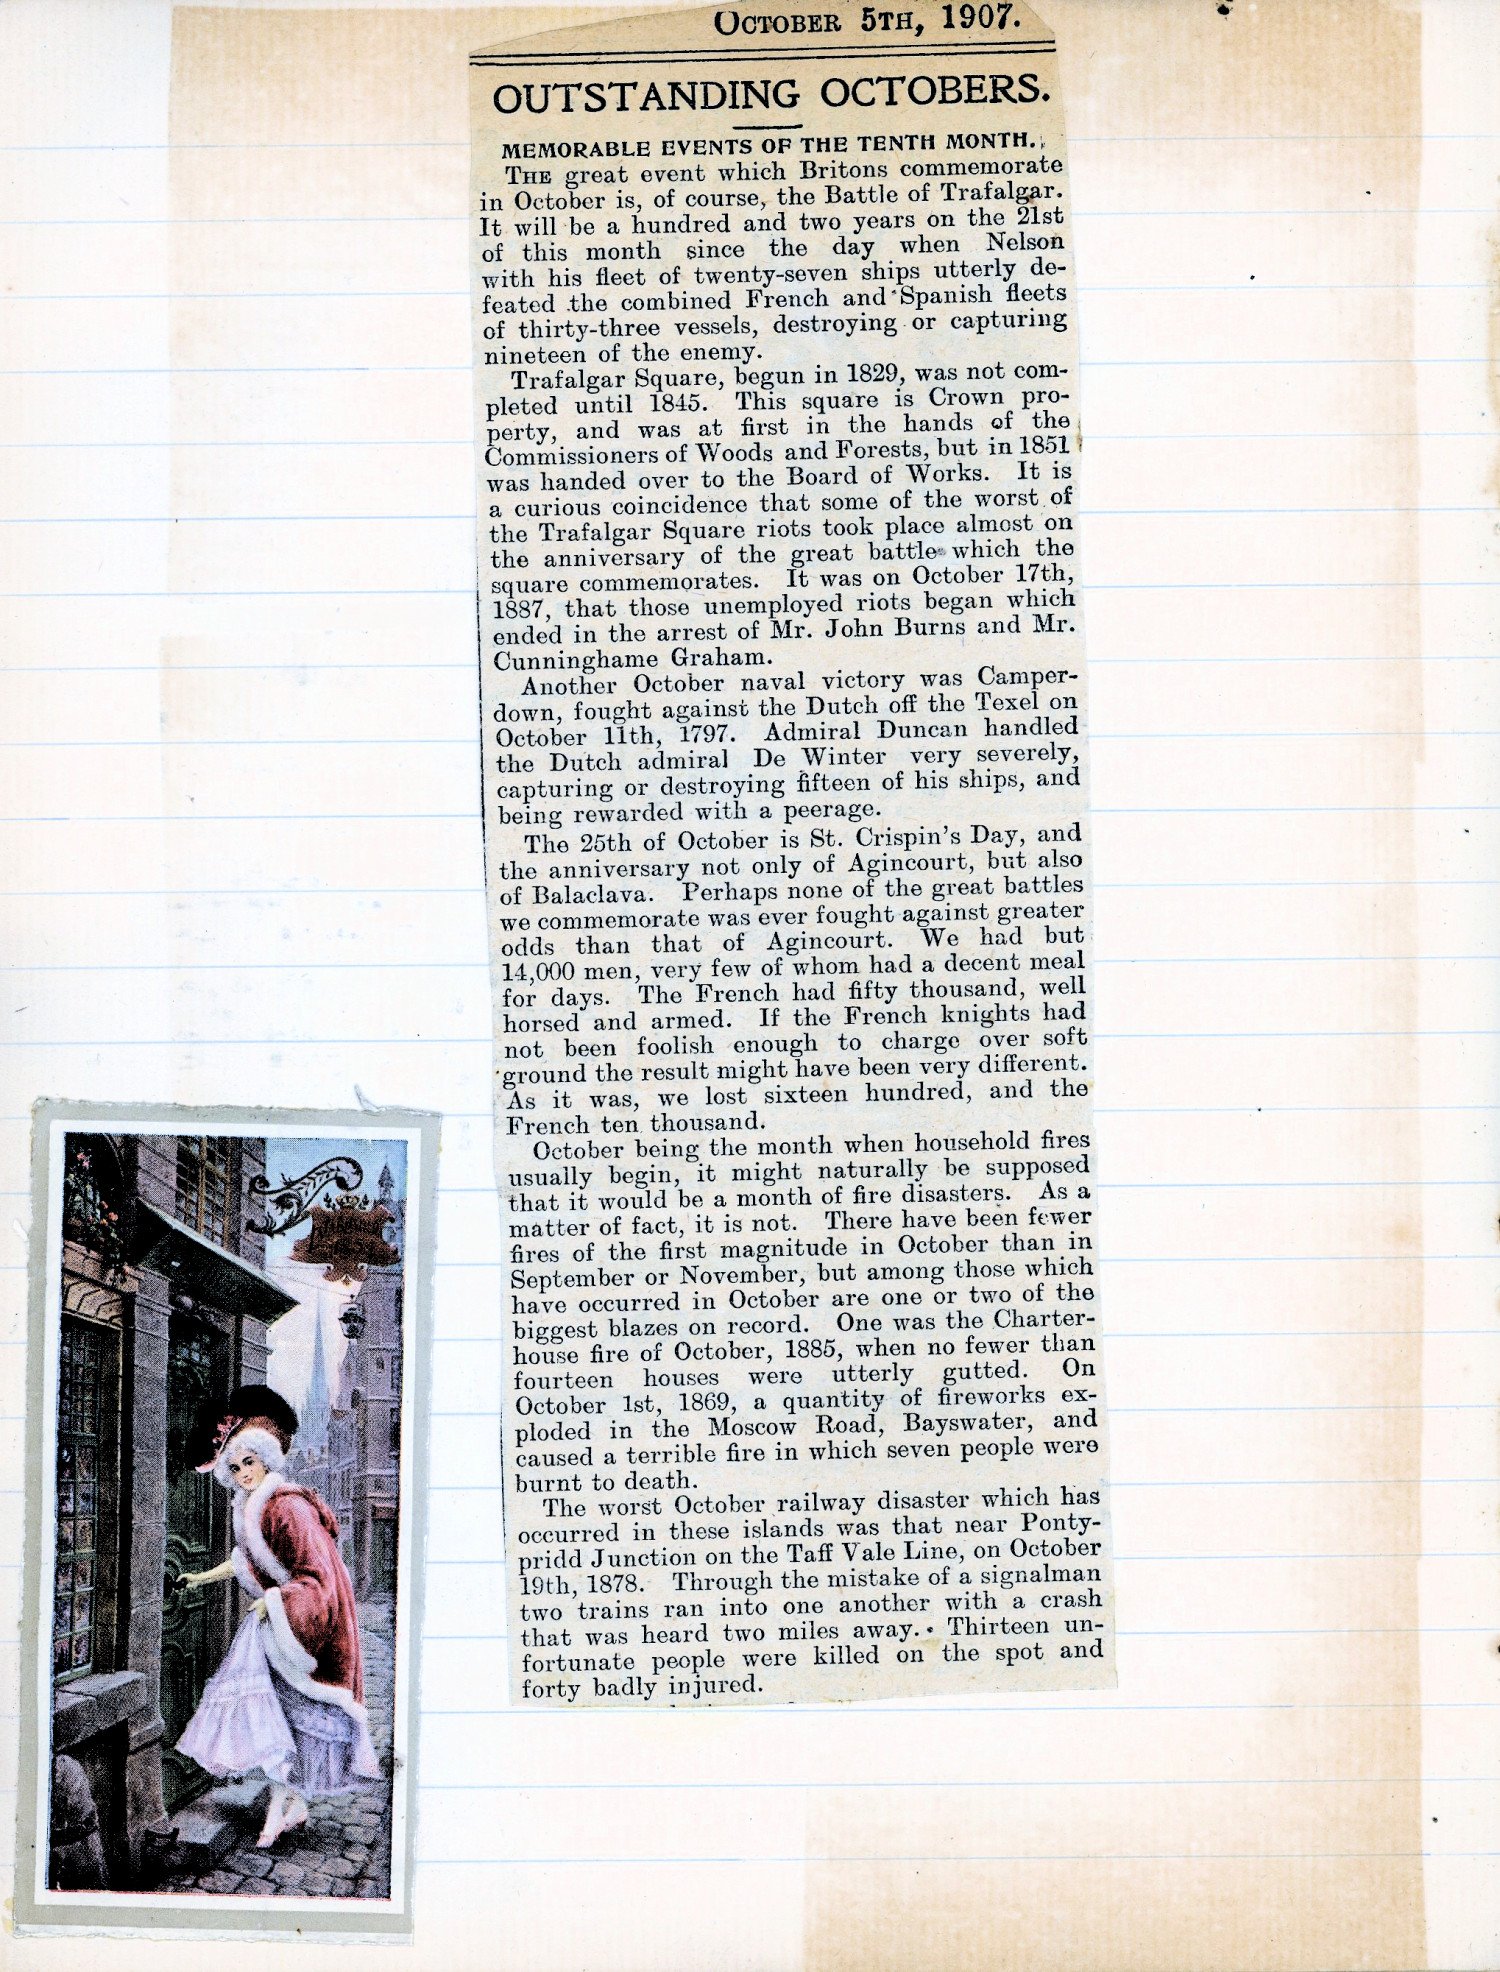 OCTOBER 5TH, 1907.
OUTSTANDING OCTOBERS.
MEMORABLE EVENTS OF THE TENTH MONTH.
THE great event which Britons commemorate
in October is, of course, the Battle of Trafalgar.
It will be a hundred and two years on the 21st
of this month since the day when Nelson
with his fleet of twenty-seven ships utterly de-
feated the combined French and Spanish fleets
of thirty-three vessels, destroying or capturing
nineteen of the enemy.
Trafalgar Square, begun in 1829, was not com-
pleted until 1845. This square is Crown pro-
perty, and was at first in the hands of the
Commissioners of Woods and Forests, but in 1851
was handed over to the Board of Works. It is
a curious coincidence that some of the worst of
the Trafalgar Square riots took place almost on
the anniversary of the great battle which the
square commemorates. It was on October 17th,
1887, that those unemployed riots began which
ended in the arrest of Mr. John Burns and Mr.
Cunninghame Graham.
Another October naval victory was Camper-
down, fought against the Dutch off the Texel on
October 11th, 1797. Admiral Duncan handled
the Dutch admiral De Winter very severely,
capturing or destroying fifteen of his ships, and
being rewarded with a peerage.
The 25th of October is St. Crispin's Day, and
the anniversary not only of Agincourt, but also
of Balaclava. Perhaps none of the great battles
we commemorate was ever fought against greater
odds than that of Agincourt. We had but
14,000 men, very few of whom had a decent meal
for days. The French had fifty thousand, well
horsed and armed. If the French knights had
not been foolish enough to charge over soft
ground the result might have been very different.
As it was, we lost sixteen hundred, and the
French ten thousand.
October being the month when household fires
usually begin, it might naturally be supposed
that it would be a month of fire disasters. As a
matter of fact, it is not. There have been fewer
fires of the first magnitude in October than in
September or November, but among those which
have occurred in October are one or two of the
biggest blazes on record. One was the Charter-
house fire of October, 1885, when no fewer than
fourteen houses were utterly gutted. On
October 1st, 1869, a quantity of fireworks ex-
ploded in the Moscow Road, Bayswater, and
caused a terrible fire in which seven people were
burnt to death.
The worst October railway disaster which has
occurred in these islands was that near Ponty-
pridd Junction on the Taff Vale Line, on October
19th, 1878. Through the mistake of a signalman
two trains ran into one another with a crash
that was heard two miles away. Thirteen un-
fortunate people were killed on the spot and
forty badly injured.